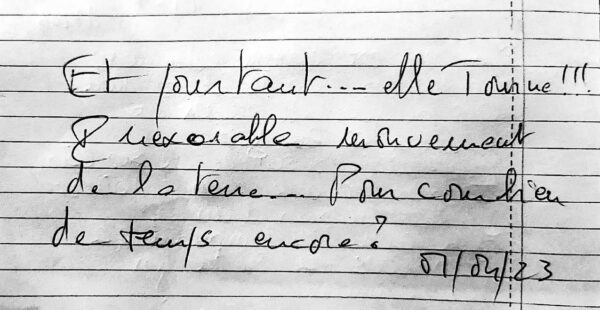 Et pourtant... elle Tourne!!!
Inexorable mouvement
de la terre... Pour combien
de temps encore?
01/04/23